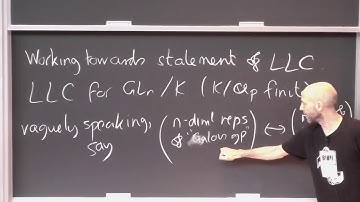 Working towards statement of LLC
LLC for GLn/K (K/Qp finite)
vaguely speaking, (n-diml reps ↔
say of "Galois gp")